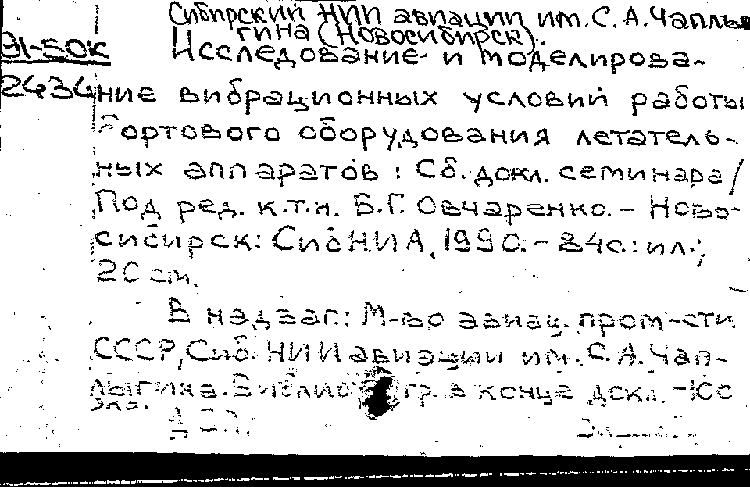 Сибирский НИИ авиации им. С. А. Чаплы-
гина (Новосибирск).
91-50к
Исследование и моделирова-
2434
ние вибрационных условий работы
бортового оборудования летатель-
ных аппаратов: Сб. докл. семинара/
Под ред. к.т.н. Б.Г. Овчаренко. - Ново-
сибирск: СибНИА, 1990. - 84с.: ил.;
20 см.
В надзаг.: М-во авиац. пром-сти
СССР, Сиб. НИИ авиации им. С. А. Чап-
лыгина. Библиогр. в конце докл. - 100
экз.